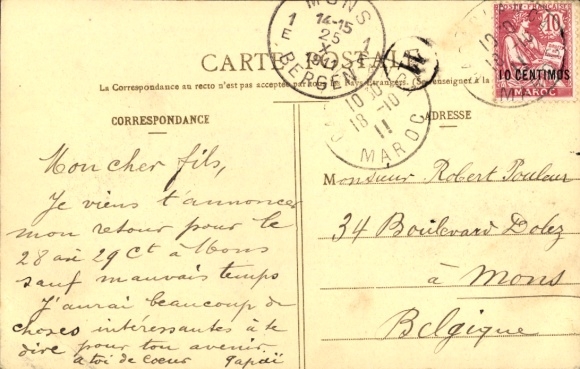 MONS
14-15
25
X
1911
BERGEN
1
E
1
POSTE FRANÇAISE
10
10 CENTIMOS
MAROC
CARTE POSTALE
La Correspondance au recto n'est pas acceptée par tous les Pays étrangers. (Se renseigner à la
10
18-10
11
MAROC
CORRESPONDANCE
ADRESSE
Mon cher fils,
Je viens t'annoncer
mon retour pour le
28 29 Ct à Mons
sauf mauvais temps
J'aurai beaucoup de
choses intéressantes à te
dire pour ton avenir
a toi de coeur
Monsieur Robert
34 Boulevard Dolez
à Mons
Belgique